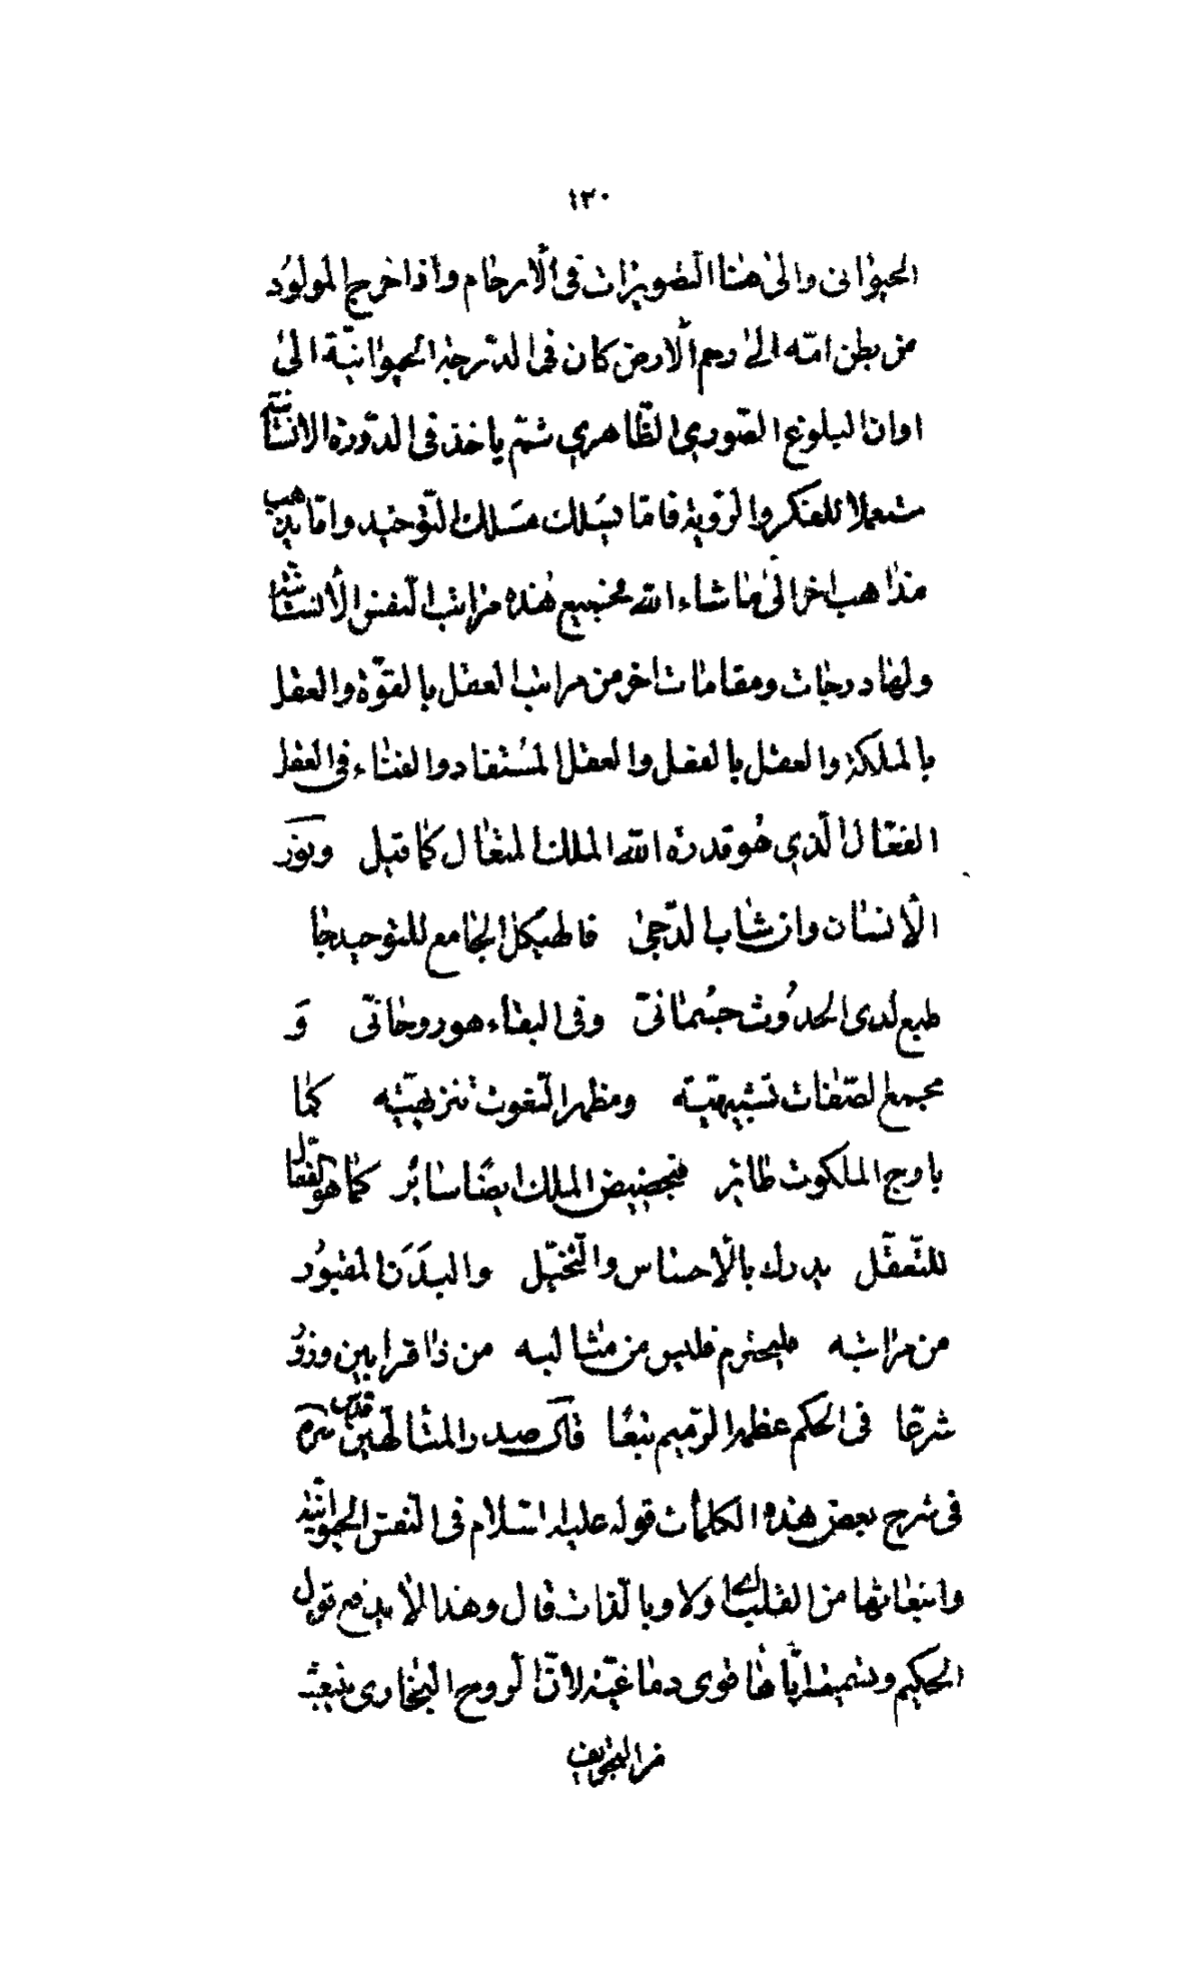 ١٣٠
الحيوانى والى هنا التصويرات فى الارحام واذا خرج المولود
من بطن امّه الى رحم الارض كان فى الدّرجة الحيوانيّة الى
اوان البلوغ الصّورى الظّاهرى ثمّ ياخذ فى الدّورة الانسانيّة
مستعملا للفكر والرّويّة فامّا يسلك مسلك التّوحيد وامّا يذهب
مذاهب اخر الى ما شاء الله فجميع هذه مراتب النّفس الانسانيّة
ولها درجات ومقامات اخر من مراتب العقل بالقوّة والعقل
بالملكة والعقل بالفعل والعقل المستفاد والفناء فى العقل
الفعّال الّذى هو قدرة الله الملك المتعال كما قيل ونور
الانسان وان شاب الدّجى فالهيكل الجامع للتوحيد جا
طبع لدى الحدوث جسمانىّ وفى البقاء هو روحانىّ و
مجمع الصّفات تشبيهيّه ومظهر النّعوت تنزيهيّه كما
باوج الملكوت طائر فبحضيض الملك ايضًا سائر كما هو الفعّال
للتّعقّل يدرك بالاحساس والتّخيّل والبدن المقبور
من مراتبه فليحترم فليس من مثالبه من ذا قرابين وزو
شرعًا فى الحكم عظم الرّميم تبعًا قال صدر المتألّهين قدّس سرّه
فى شرح بعض هذه الكلمات قوله عليه السّلام فى النّفس الحيوانيّة
وانبعاثها من القلب اى اولا وبالذّات قال وهذا لا يدفع قول
الحكيم وتسميته ايّاها قوى دماغيّة لانّ الروح البخارى ينبعث
من التجويف